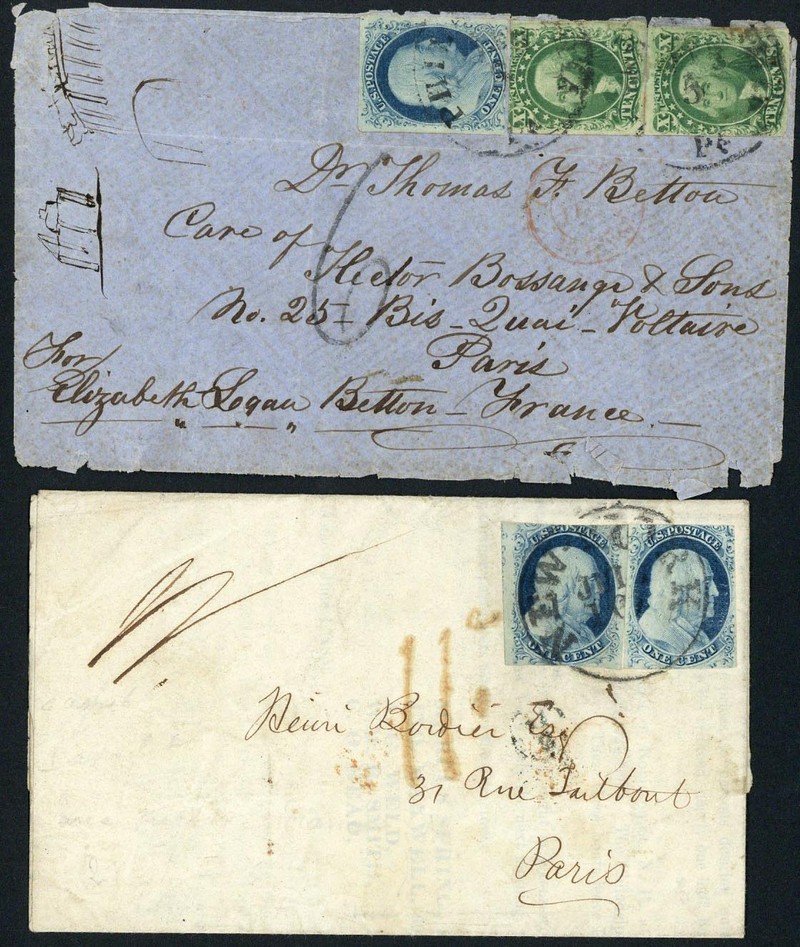 U.S. POSTAGE
ONE CENT
X
TEN CENTS
X
X
TEN CENTS
X
PHIL
Pa
Dr. Thomas F. Betton
Care of
Hector Bossange & Sons
No. 25 - Bis - Quai - Voltaire
Paris
For
Elizabeth Logan Betton - France. -
U.S. POSTAGE
ONE CENT
U.S. POSTAGE
ONE CENT
NEW YORK
Henri Bordier Esq
31 Rue Taitbout
Paris